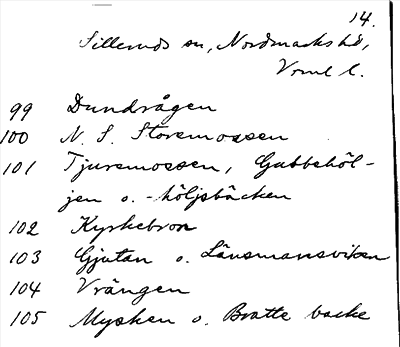 14.
Silleruds sn, Nordmarks hd,
Vrml l.
99 Dundrågen
100 N. S. Storsmossen
101 Tjursmossen, Gabbehöl-
jen o. -höljsbäcken
102 Kyrkebron
103 Gjutan o. Länsmansviken
104 Vrängen
105 Mysken o. Bratte backe